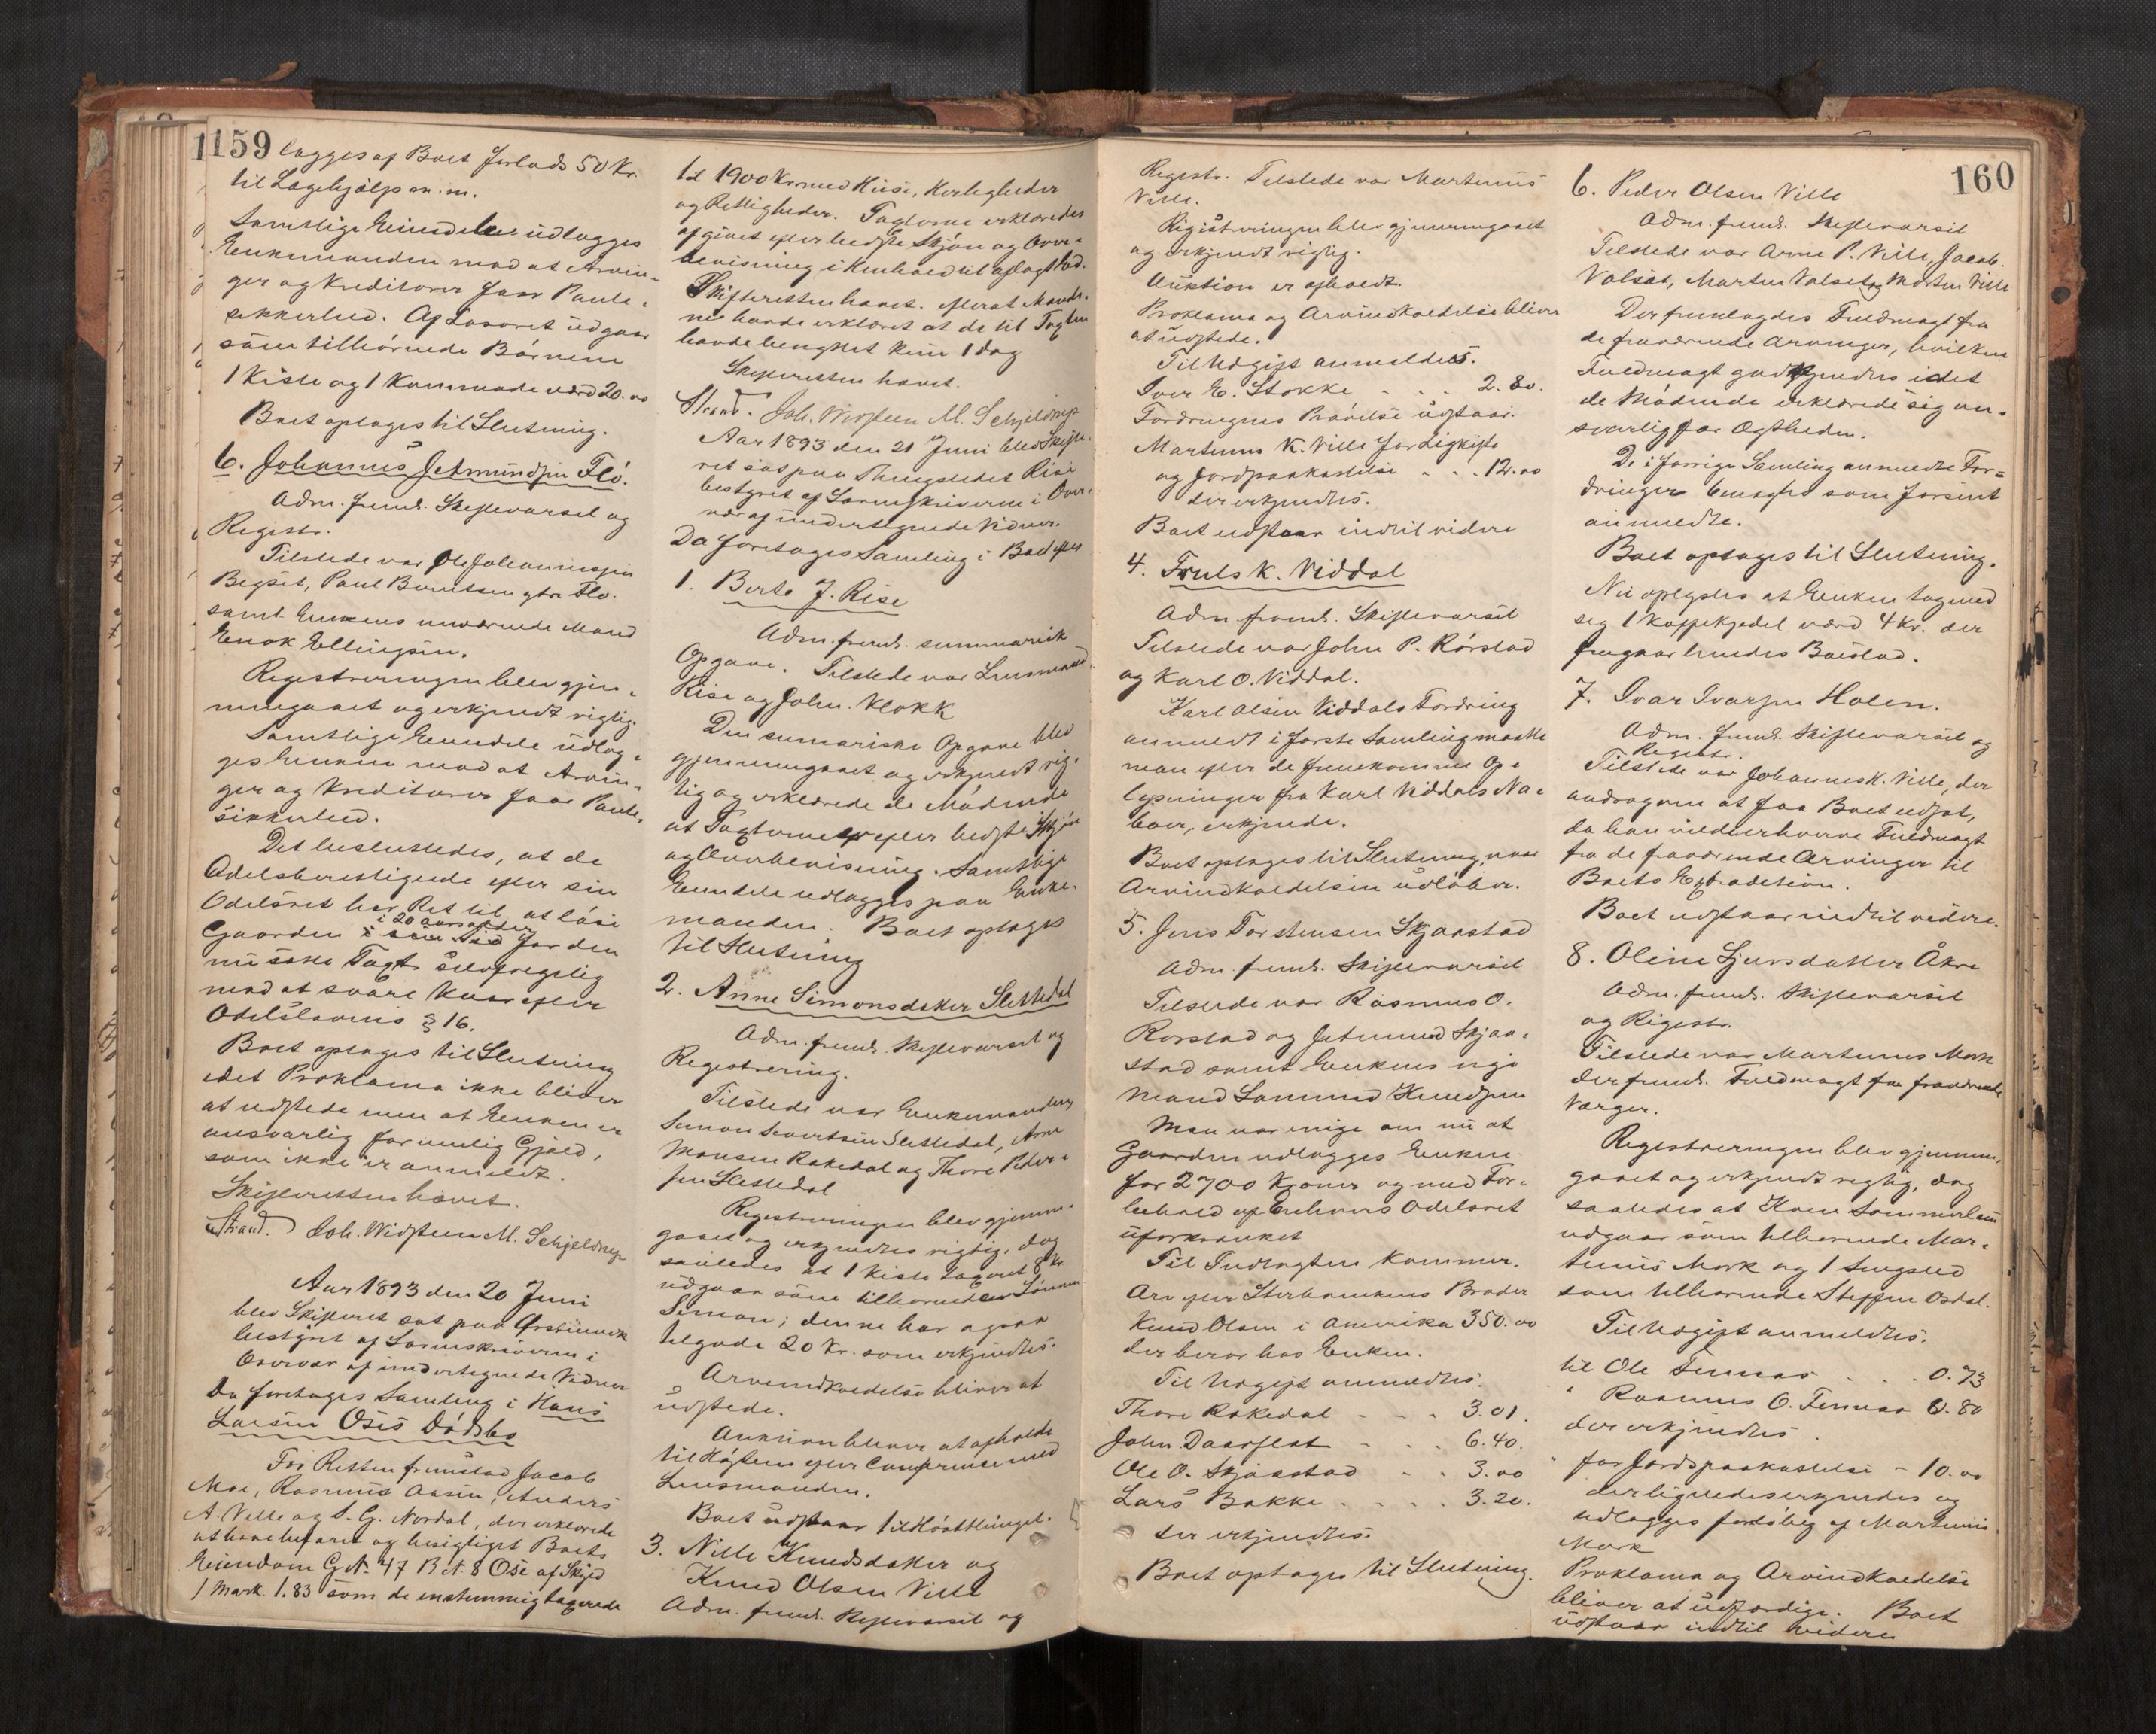 159
lægges af Boet forlods 50 Kr.
til Lægehjælp m. m.
Samtlige Eiendele udlægges
Enkemanden mod at Arvin-
ger og Kreditorer faar Pante-
sikkerhed. Af Løsøret udgaar
som tilhørende Børnene
1 Kiste og 1 Kommode værd 20.00
Boet optages til Slutning.
6. Johannes Jetmundsen Flö.
Adm. freml. Skiftevarsel og
Registr.
Tilstede var Ole Johannessen
Begset, Paul Berntsen Flö.
samt Enkens nuværende Mand
Enok Ellingsen.
Registreringen blev gjen-
nemgaaet og erkjendt rigtig.
Samtlige Eiendele udlæg-
ges Enken mod at Arvin-
ger og Kreditorer faar Pante-
sikkerhed.
Det besluttedes, at de
Odelsberettigede efter sin
Odelsret har Ret til at løse
Gaarden i 20 aarsalder for den
nu satte Taxt
mod at svare Kaar efter
Odelslovens § 16.
Boet optages til Slutning
idet Proklama ikke bliver
at udstede men at Enken er
ansvarlig for mulig Gjæld,
som ikke er anmeldt.
Skifteretten hævet.
Strand. Joh. Widsteen M. Schjeldrup
Aar 1893 den 20 Juni
blev Skifteret sat paa Ørstenvik
bestyret af Sorenskriveren i
Overvær af undertegnede Vidner
Da foretages Samling i Hans
Larsen Oses Dødsbo
For Retten fremstod Jacob
Moe, Rasmus Aasen, Anders
A. Velle og S. G. Nordal, der erklærede
at have befaret og besigtiget Boets
Eiendom G. N. 47 B. N. 8 Ose af Skyld
1 Mark 1.83 som de enstemmig taxerede
til 1900 Kr. med Huse, Herligheder
og Rettigheder. Taxterne erklæredes
afgivet efter bedste Skjøn og Over-
bevisning i Henhold til aflagt Ed.
Skifteretten hævet. efterat Mænde-
ne havde erklæret at de til Taxten
havde benyttet kun 1 dag
Skifteretten hævet.
Strand. Joh. Widsteen M. Schjeldrup
Aar 1893 den 21 Juni blev Skifte-
ret sat paa Thingstedet Rise
bestyret af Sorenskriveren i Over-
vær af undertegnede Vidner.
Da foretages Samling i Boet efter
1. Berte J. Rise
Adm. freml. summarisk
Opgave. Tilstede var Lensmand
Rise og John Klokk
Den sumariske Opgave blev
gjennemgaaet og erkjendt rig-
tig og erklærede de Mødende
at Taxterne er efter bedste Skjøn
og Overbevisning. Samtlige
Eiendele udlægges paa Enke-
manden. Boet optages
til Slutning
2. Anne Simonsdatter Slettedal
Adm. freml. Skiftevarsel og
Registrering.
Tilstede var Enkemanden
Simon Sivertsen Slettedal, Arne
Monsen Rakedal og Thore Peder-
sen Slettedal
Registreringen blev gjennem-
gaaet og erkjendtes rigtig, dog
saaledes at 1 Kiste taxeret 8 Kr.
udgaar som tilhørende Sønnen
Simon; denne har ogsaa
tilgode 20 Kr. som erkjendtes.
Arveindkaldelse bliver at
udstede.
Auktion bliver at afholde
til Høsten efter Conference med
Lensmanden.
Boet udstaar til Høstthinget.
3. Nille Knudsdatter og
Knud Olsen Ville
Adm. freml. Skiftevarsel og
160
Registr. Tilstede var Martinus
Ville.
Registreringen blev gjennemgaaet
og erkjendt rigtig.
Auktion er afholdt.
Proklama og Arveindkaldelse bliver
at udstede.
Til Udgift anmeldtes.
Iver E. Stokke 2.80.
Fordringens Prøvelse udstaar.
Martinus K. Ville for Ligkiste
og Jordpaakastelse 12.00
der erkjendtes.
Boet udstaar indtil videre
4. Truls K. Viddal
Adm freml. Skiftevarsel
Tilstede var John P. Rørstad
og Karl O. Viddal.
Karl Olsen Viddals Fordring
anmeldt i første Samling maatte
man efter de fremkomne Op-
lysninger fra Karl Viddals Na-
boer, erkjende.
Boet optages til Slutning, naar
Arveindkaldelsen udløber.
5. Jens Torstensen Skjaastad
Adm. freml. Skiftevarsel
Tilstede var Rasmus O.
Rørstad og Jetmund Skjaa-
stad samt Enkens nye
Mand Samund Knudsen
Man var enige om nu at
Gaarden udlægges Enken
for 2700 Kroner og med For-
behold af Enhvers Odelsret
uforkrænket
Til Indtægten kommer.
Arv efter Sterboenkens Broder
Knud Olsen i Amerika 350.00
der beror hos Enken.
Til Udgift anmeldtes.
Thore Rakedal 3.01.
John Daarflat 6.40.
Ole O. Skjaastad 3.00
Lars Bakke 3.20.
der erkjendtes.
Boet optages til Slutning.
6. Peder Olsen Ville
Adm. freml. Skiftevarsel
Tilstede var Arne P. Ville, Jacob
Valset, Morten Valset og Morten Ville
Der fremlagdes Fuldmagt fra
de fraværende Arvinger, hvilken
Fuldmagt godkjendtes idet
de Mødende erklærede sig an-
svarlig for Ægtheden.
De i forrige Samling anmeldte For-
dringer benægtes som forsent
anmeldte.
Boet optages til Slutning.
Nu oplystes at Enken tog med
seg 1 Kaffekjedel værd 4 Kr. der
fragaar hendes Boeslod.
7. Ivar Ivarsen Holen.
Adm. freml. Skiftevarsel og
Registr.
Tilstede var Johannes K. Ville, der
androg om at faa Boet udsat,
da han vilde erhverve Fuldmagt
fra de fraværende Arvinger til
Boets Extradition.
Boet udstaar indtil videre.
8. Oline Sjursdatter Åkre
Adm. freml. Skiftevarsel
og Registr.
Tilstede var Martinus Mork
der freml. Fuldmagt fra fraværende
Værger.
Registreringen blev gjennem-
gaaet og erkjendt rigtig, dog
saaledes at
udgaar som tilhørende Mar-
tinus Mork og 1 Sengsted
som tilhørende Steffen Osdal.
Til Udgift anmeldtes.
til Ole Finnes 0.73
" Rasmus O. Finnes 0.80
der erkjendtes.
" for Jordpaakastelse - 10.00
der ligeledes erkjendtes og
udlægges forskudsvis af Martinus
Mork
Proklama og Arveindkaldelse
bliver at udfærdige. Boet
udstaar indtil videre